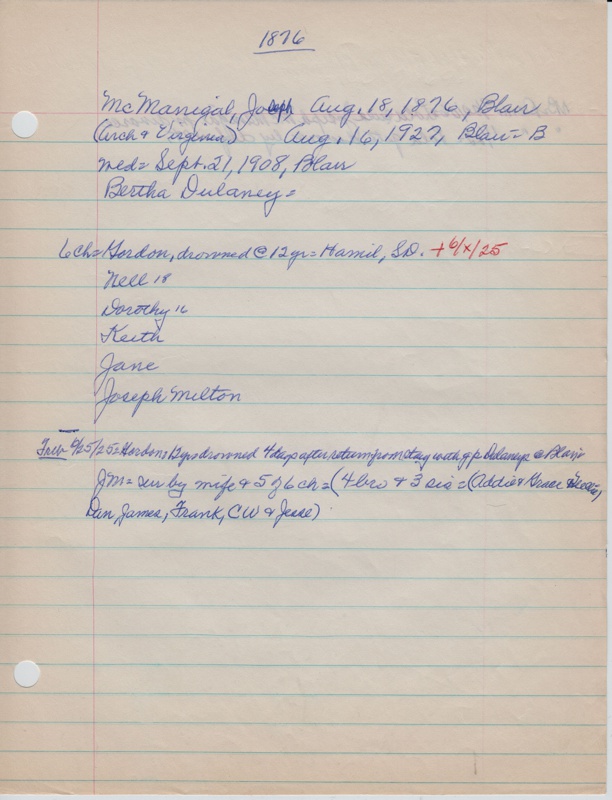 1876
McManigal, Joseph Aug. 18, 1876, Blair
(Arch & Virginia) Aug. 16, 1927, Blair = B
med = Sept. 21, 1908, Blair
Bertha Dulaney =
6 ch = Gordon, drowned @ 12 yr = Hamil, S.D. + 6/x/25
Nell 18
Dorothy 16
Keith
Jane
Joseph Milton
6/25/25 = Gordon = 12 yrs drowned 4 days after return from stay with g.p. Dulaneys @ Blair
JM = sur by wife & 5 of 6 ch = (4 bro & 3 sis = (Addie & Grace &
Dan, James, Frank, CW & Jesse)